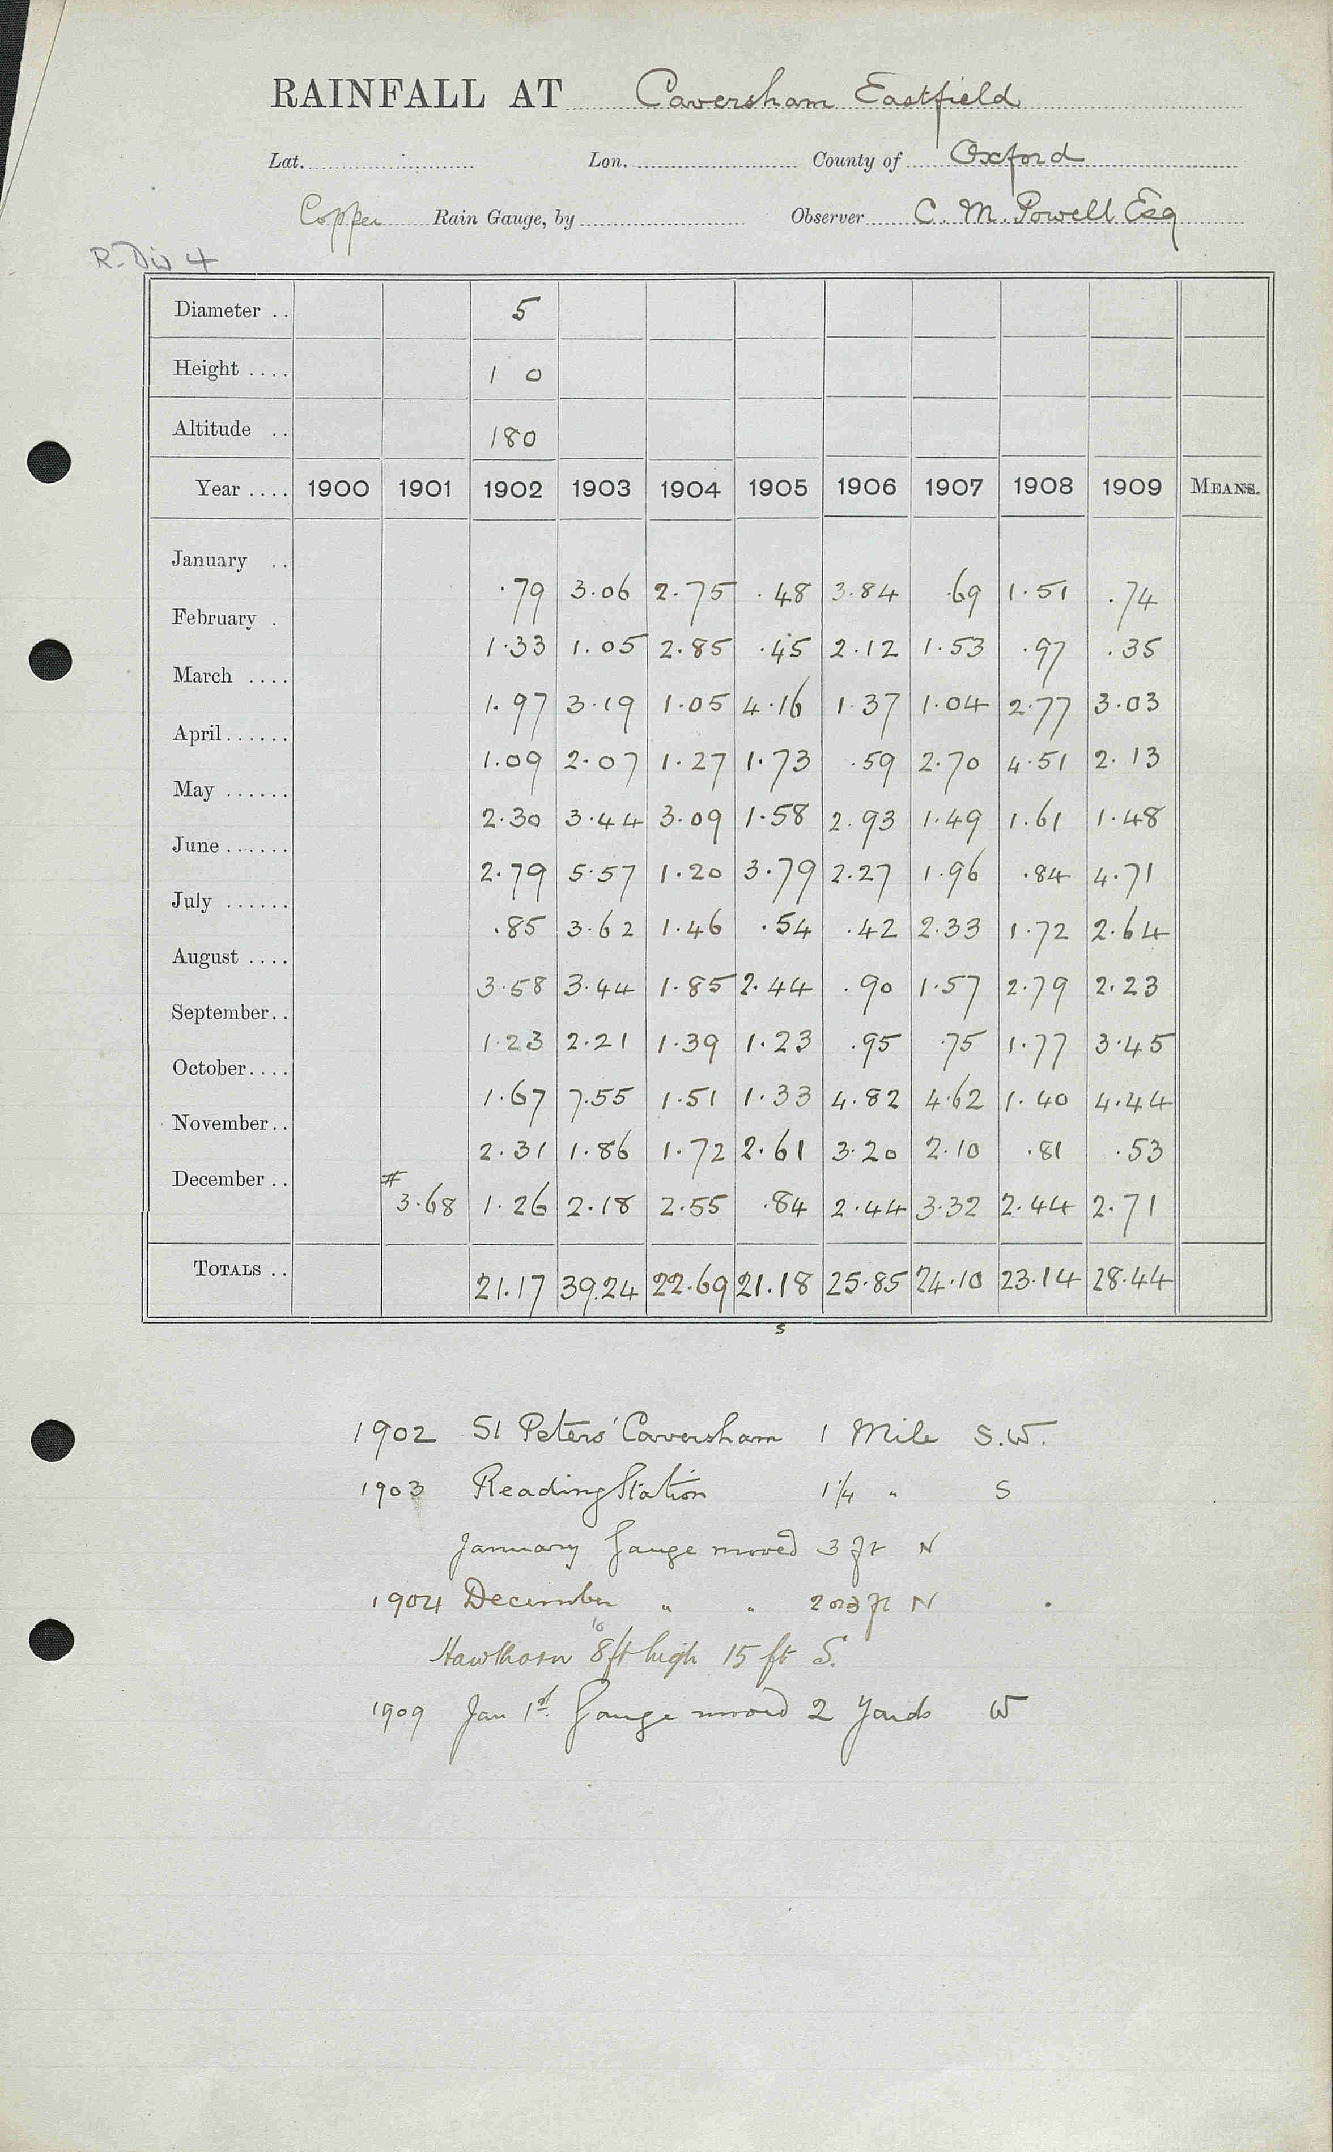 RAINFALL AT Caversham Eastfield
Lat. Lon. County of Oxford
Copper Rain Gauge, by Observer C. M. Powell Esq
R. Div 4
Diameter .. 5
Height .... 1 0
Altitude .. 180
Year .... 1900 1901 1902 1903 1904 1905 1906 1907 1908 1909 MEANS.
January .. .79 3.06 2.75 .48 3.84 .69 1.51 .74
February . 1.33 1.05 2.85 .45 2.12 1.53 .97 .35
March .... 1.97 3.19 1.05 4.16 1.37 1.04 2.77 3.03
April ...... 1.09 2.07 1.27 1.73 .59 2.70 4.51 2.13
May ...... 2.30 3.44 3.09 1.58 2.93 1.49 1.61 1.48
June ...... 2.79 5.57 1.20 3.79 2.27 1.96 .84 4.71
July ...... .85 3.62 1.46 .54 .42 2.33 1.72 2.64
August .... 3.58 3.44 1.85 2.44 .90 1.57 2.79 2.23
September.. 1.23 2.21 1.39 1.23 .95 .75 1.77 3.45
October.... 1.67 7.55 1.51 1.33 4.82 4.62 1.40 4.44
November.. 2.31 1.86 1.72 2.61 3.20 2.10 .81 .53
December .. # 3.68 1.26 2.18 2.55 .84 2.44 3.32 2.44 2.71
TOTALS .. 21.17 39.24 22.69 21.18 25.85 24.10 23.14 28.44
s
1902 St Peters' Caversham 1 Mile S.W.
1903 Reading Station 1 1/4 " S
January Gauge moved 3 ft N
1904 December " " 2 or 3 ft N
10
Hawthorn 8 ft high 15 ft S.
1909 Jan 1st. Gauge moved 2 Yards W